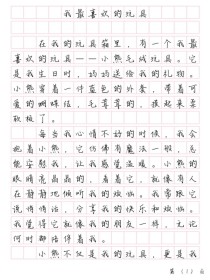 我最喜欢的玩具
在我的玩具箱里，有一个我最
喜欢的玩具——小熊毛绒玩具。它
是我生日时，妈妈送给我的礼物。
小熊穿着一件蓝色的外套，带着可
爱的蝴蝶结，毛茸茸的，摸起来柔
软极了。
每当我心情不好的时候，我会
抱着小熊，它仿佛有魔法一般，总
能安慰我，让我感觉温暖。小熊的
眼睛亮晶晶的，看着它，就像有人
在静静地倾听我的烦恼。我常跟它
说悄悄话，分享我的快乐和烦恼。
我觉得它就像我的朋友一样，无论
何时都陪伴着我。
小熊不仅是我的玩具，更是我